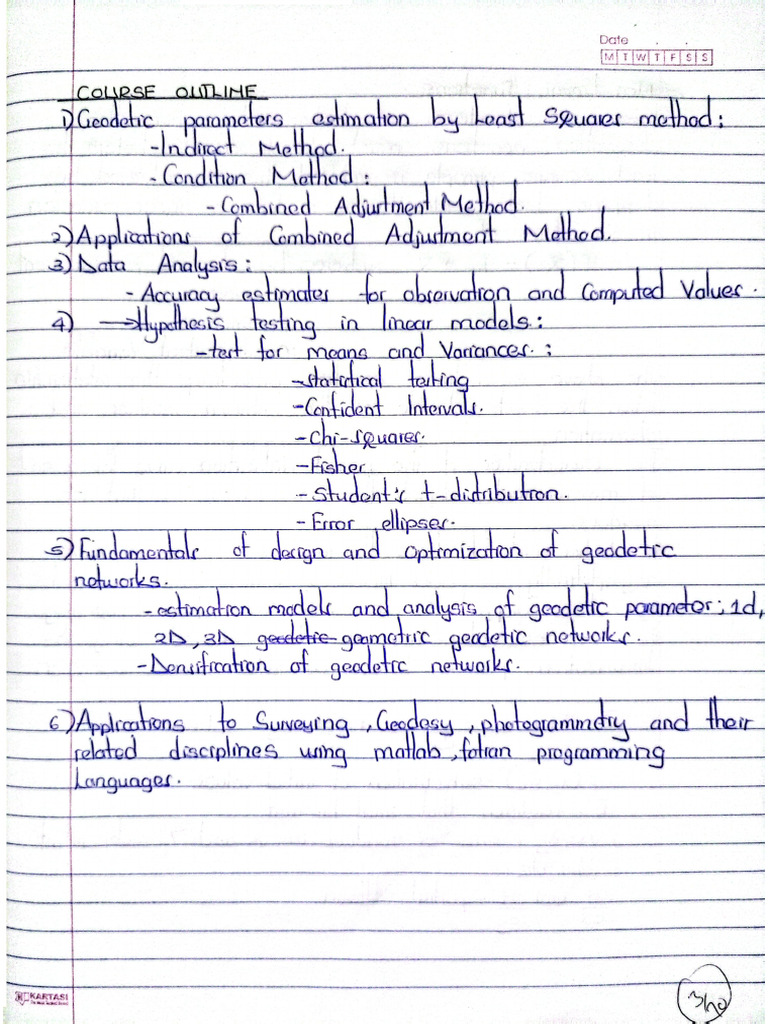 Date
M T W T F S S
COURSE OUTLINE
1) Geodetic parameters estimation by Least Squares method:
- Indirect Method.
- Condition Method:
- Combined Adjustment Method.
2) Applications of Combined Adjustment Method.
3) Data Analysis:
- Accuracy estimates for observation and Computed Values.
4) → Hypothesis testing in linear models:
- test for means and Variances.:
- Statistical testing
- Confident Intervals.
- Chi-squares.
- Fisher
- Student's t-distribution.
- Error ellipses.
5) Fundamentals of design and Optimization of geodetic
networks.
- estimation models and analysis of geodetic parameter; 1d,
2D, 3D geodetic geometric geodetic networks.
- Densification of geodetic networks.
6) Applications to Surveying, Geodesy, photogrammetry and their
related disciplines using matlab, fotran programming
Languages.
KARTASI